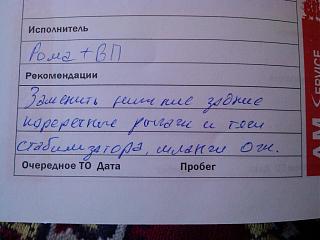 Исполнитель
Рома + ВП
Рекомендации
Заменить нижние задние
поперечные рычаги и тяги
стабилизатора, шланги
Очередное ТО Дата Пробег
AM SERVICE